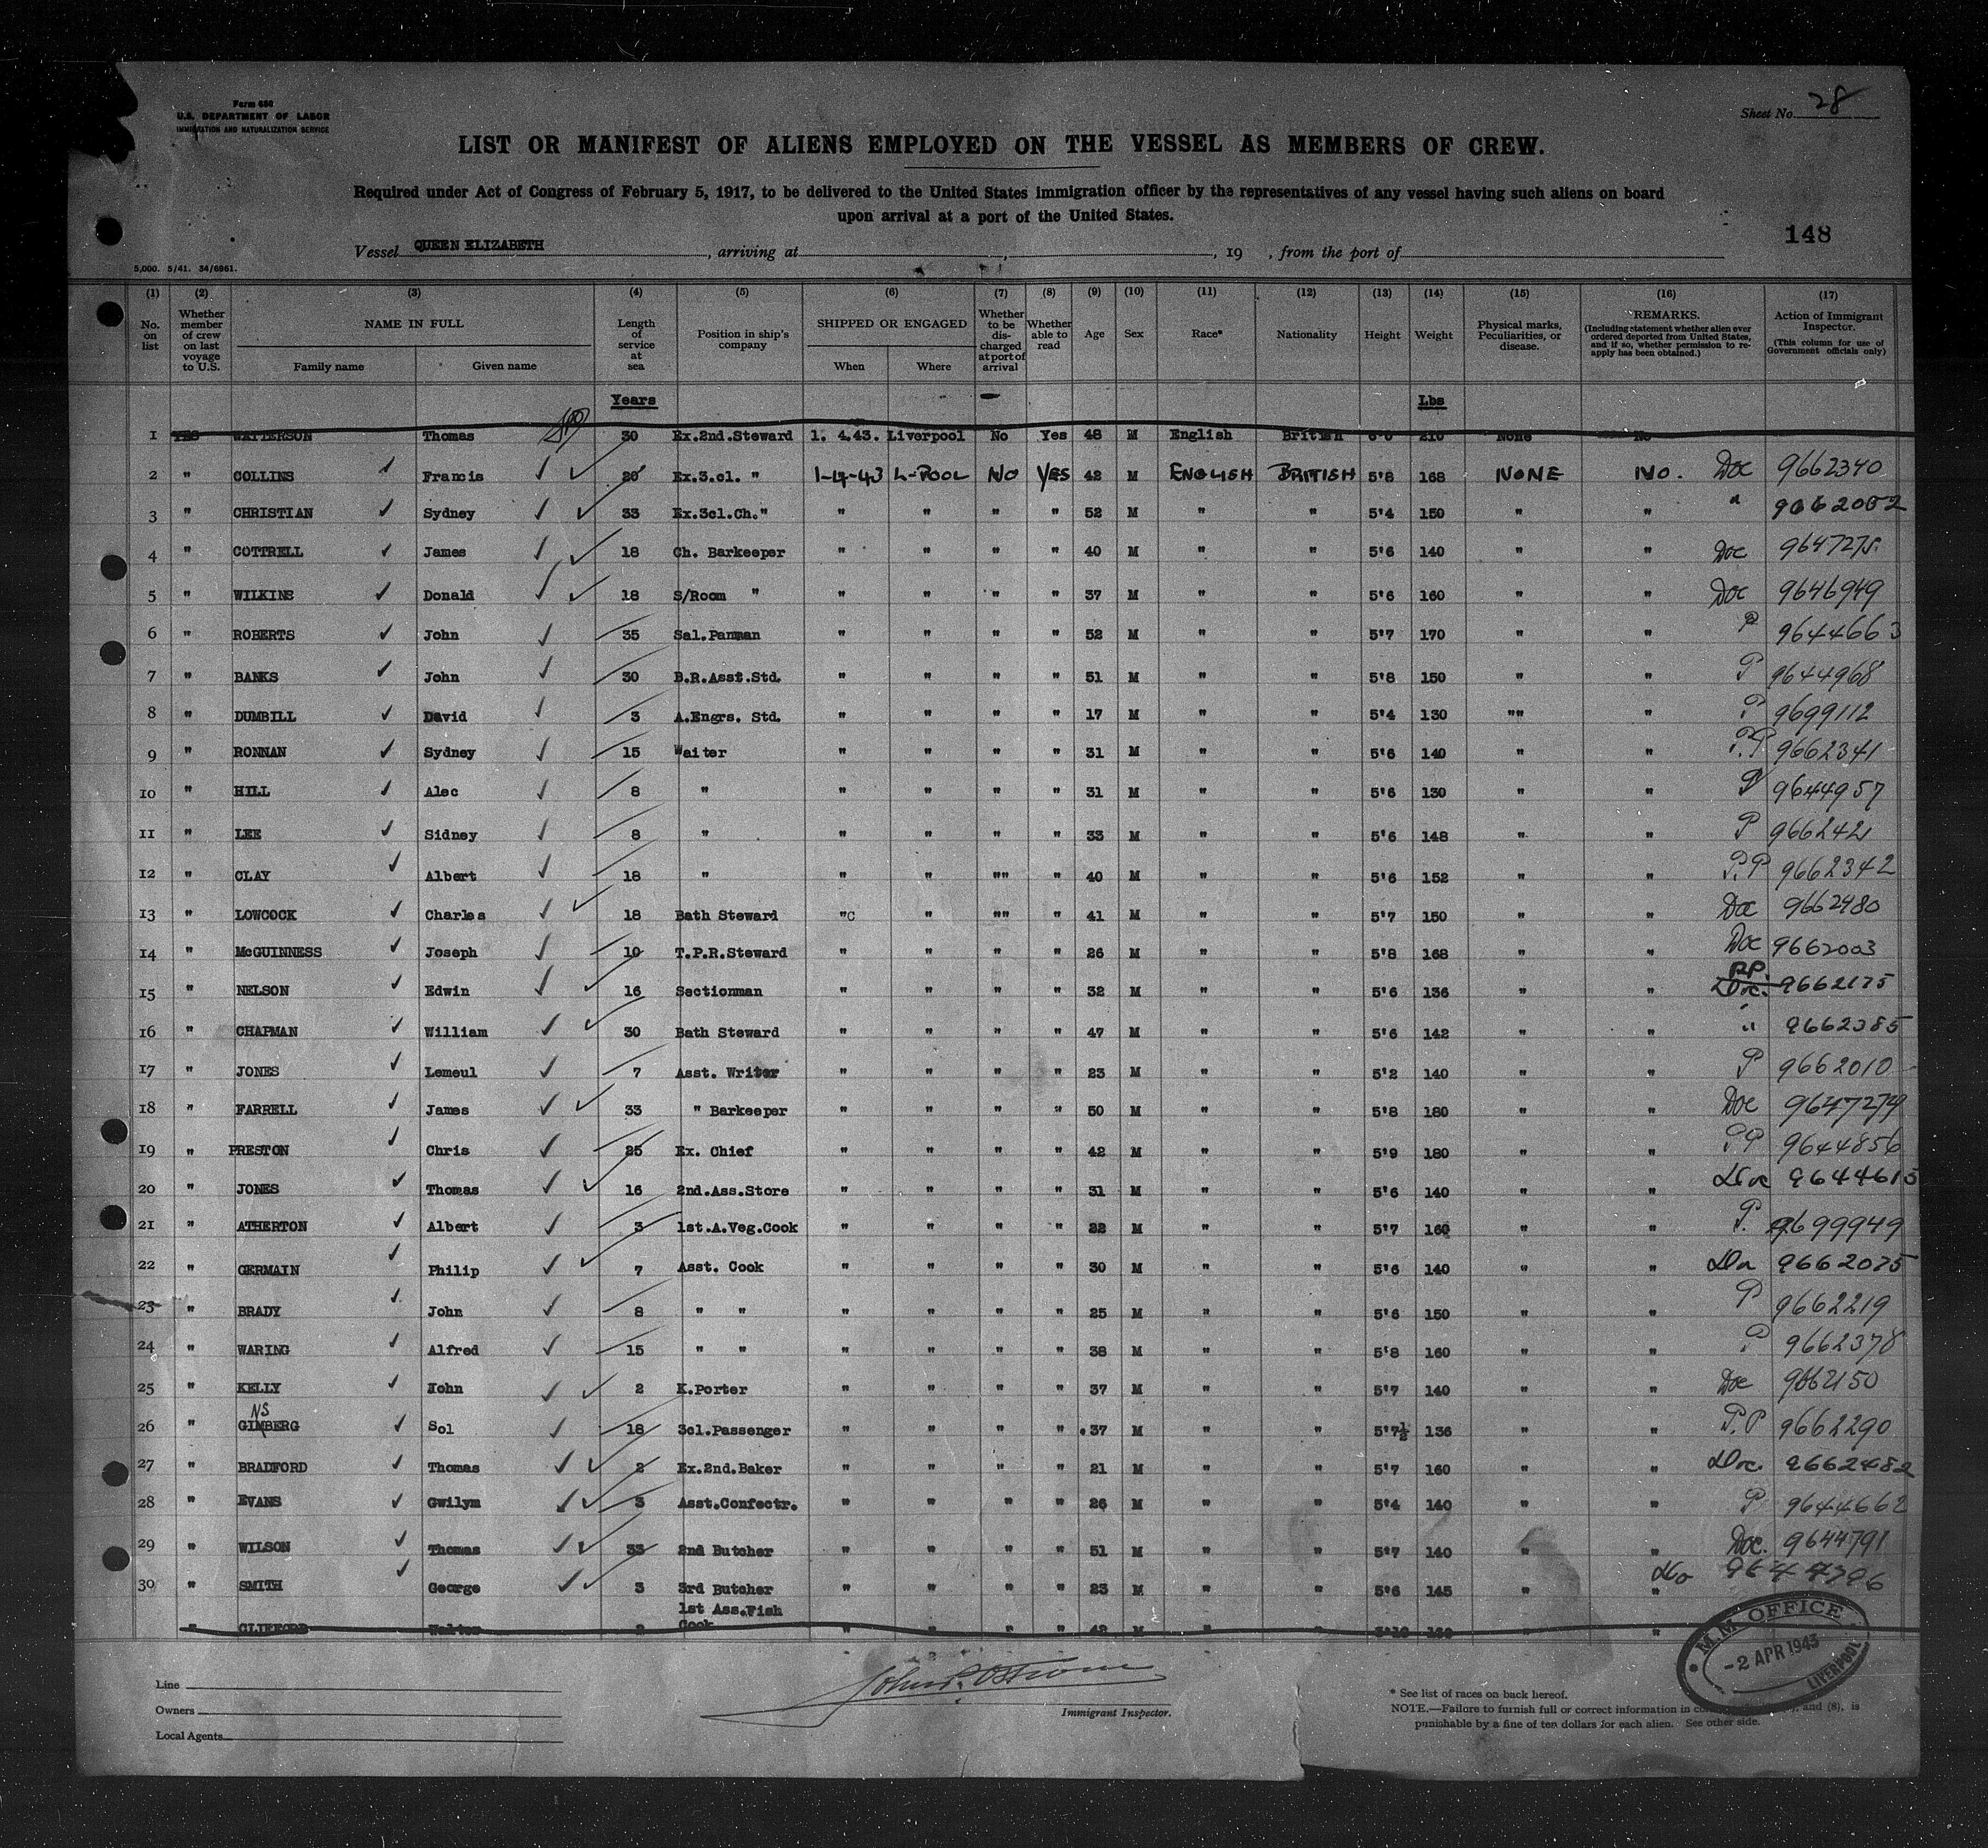 Form 680
U.S. DEPARTMENT OF LABOR
IMMIGRATION AND NATURALIZATION SERVICE
Sheet No. 28
LIST OR MANIFEST OF ALIENS EMPLOYED ON THE VESSEL AS MEMBERS OF CREW.
Required under Act of Congress of February 5, 1917, to be delivered to the United States immigration officer by the representatives of any vessel having such aliens on board
upon arrival at a port of the United States.
148
Vessel QUEEN ELIZABETH, arriving at , , 19 , from the port of
5,000. 5/41. 34/6961.
(1) (2) (3) (4) (5) (6) (7) (8) (9) (10) (11) (12) (13) (14) (15) (16) (17)
No. on list Whether member of crew on last voyage to U.S. NAME IN FULL Family name Given name Length of service at sea Position in ship's company SHIPPED OR ENGAGED When Where Whether to be discharged at port of arrival Whether able to read Age Sex Race* Nationality Height Weight Physical marks, Peculiarities, or disease. REMARKS. (Including statement whether alien ever ordered deported from United States, and if so, whether permission to re-apply has been obtained.) Action of Immigrant Inspector. (This column for use of Government officials only)
Years Lbs
1 YES WATTERSON Thomas 30 Ex.2nd.Steward 1. 4.43. Liverpool No Yes 48 M English British 6'0 210 None No
2 " COLLINS Francis 20 Ex.3.cl. " 1-4-43 L-POOL NO YES 42 M ENGLISH BRITISH 5'8 168 NONE NO. Doc 9662340
3 " CHRISTIAN Sydney 33 Ex.3cl.Ch." " " " " 52 M " " 5'4 150 " " " 9662052
4 " COTTRELL James 18 Ch. Barkeeper " " " " 40 M " " 5'6 140 " " Doc 9647275
5 " WILKINS Donald 18 S/Room " " " " " 37 M " " 5'6 160 " " Doc 9646949
6 " ROBERTS John 35 Sal.Panman " " " " 52 M " " 5'7 170 " " P 9644663
7 " BANKS John 30 B.R.Asst.Std. " " " " 51 M " " 5'8 150 " " P 9644968
8 " DUMBILL David 3 A.Engrs. Std. " " " " 17 M " " 5'4 130 "" " P 9699112
9 " RONNAN Sydney 15 Waiter " " " " 31 M " " 5'6 140 " " P.P 9662341
10 " HILL Alec 8 " " " " " 31 M " " 5'6 130 " " P 9644957
11 " LEE Sidney 8 " " " " " 33 M " " 5'6 148 " " P 9662421
12 " CLAY Albert 18 " " " "" " 40 M " " 5'6 152 " " P.P 9662342
13 " LOWCOCK Charles 18 Bath Steward "C " "" " 41 M " " 5'7 150 " " Doc 9662480
14 " McGUINNESS Joseph 10 T.P.R.Steward " " " " 26 M " " 5'8 168 " " Doc 9662003
15 " NELSON Edwin 16 Sectionman " " " " 32 M " " 5'6 136 " " P.P. Doc. 9662175
16 " CHAPMAN William 30 Bath Steward " " " " 47 M " " 5'6 142 " " " 9662385
17 " JONES Lemeul 7 Asst. Writer " " " " 23 M " " 5'2 140 " " P 9662010
18 " FARRELL James 33 " Barkeeper " " " " 50 M " " 5'8 180 " " Doc 9647274
19 " PRESTON Chris 25 Ex. Chief " " " " 42 M " " 5'9 180 " " PP 9644856
20 " JONES Thomas 16 2nd.Ass.Store " " " " 31 M " " 5'6 140 " " Doc 9644615
21 " ATHERTON Albert 3 1st.A.Veg.Cook " " " " 22 M " " 5'7 160 " " P. 9699949
22 " GERMAIN Philip 7 Asst. Cook " " " " 30 M " " 5'6 140 " " Do 9662075
23 " BRADY John 8 " " " " " " 25 M " " 5'6 150 " " P 9662219
24 " WARING Alfred 15 " " " " " " 38 M " " 5'8 160 " " P 9662378
25 " KELLY John 2 K.Porter " " " " 37 M " " 5'7 140 " " Doc 9662150
NS
26 " GIMBERG Sol 18 3cl.Passenger " " " " 37 M " " 5'7½ 136 " " P.P 9662290
27 " BRADFORD Thomas 2 Ex.2nd.Baker " " " " 21 M " " 5'7 160 " " Doc. 9662482
28 " EVANS Gwilym 3 Asst.Confectr. " " " " 26 M " " 5'4 140 " " P 9644662
29 " WILSON Thomas 33 2nd Butcher " " " " 51 M " " 5'7 140 " " Doc. 9644791
30 " SMITH George 3 3rd Butcher " " " " 23 M " " 5'6 145 " Do 9644796
" CLIFFORD Walter 2 1st Ass.Fish Cook " " " " 42 M " " 5'10 " "
M.M. OFFICE
-2 APR 1943
LIVERPOOL
Line
Owners
Local Agents
Immigrant Inspector.
* See list of races on back hereof.
NOTE.—Failore to furnish full or correct information in and (8), is
punishable by a fine of ten dollars for each alien. See other side.